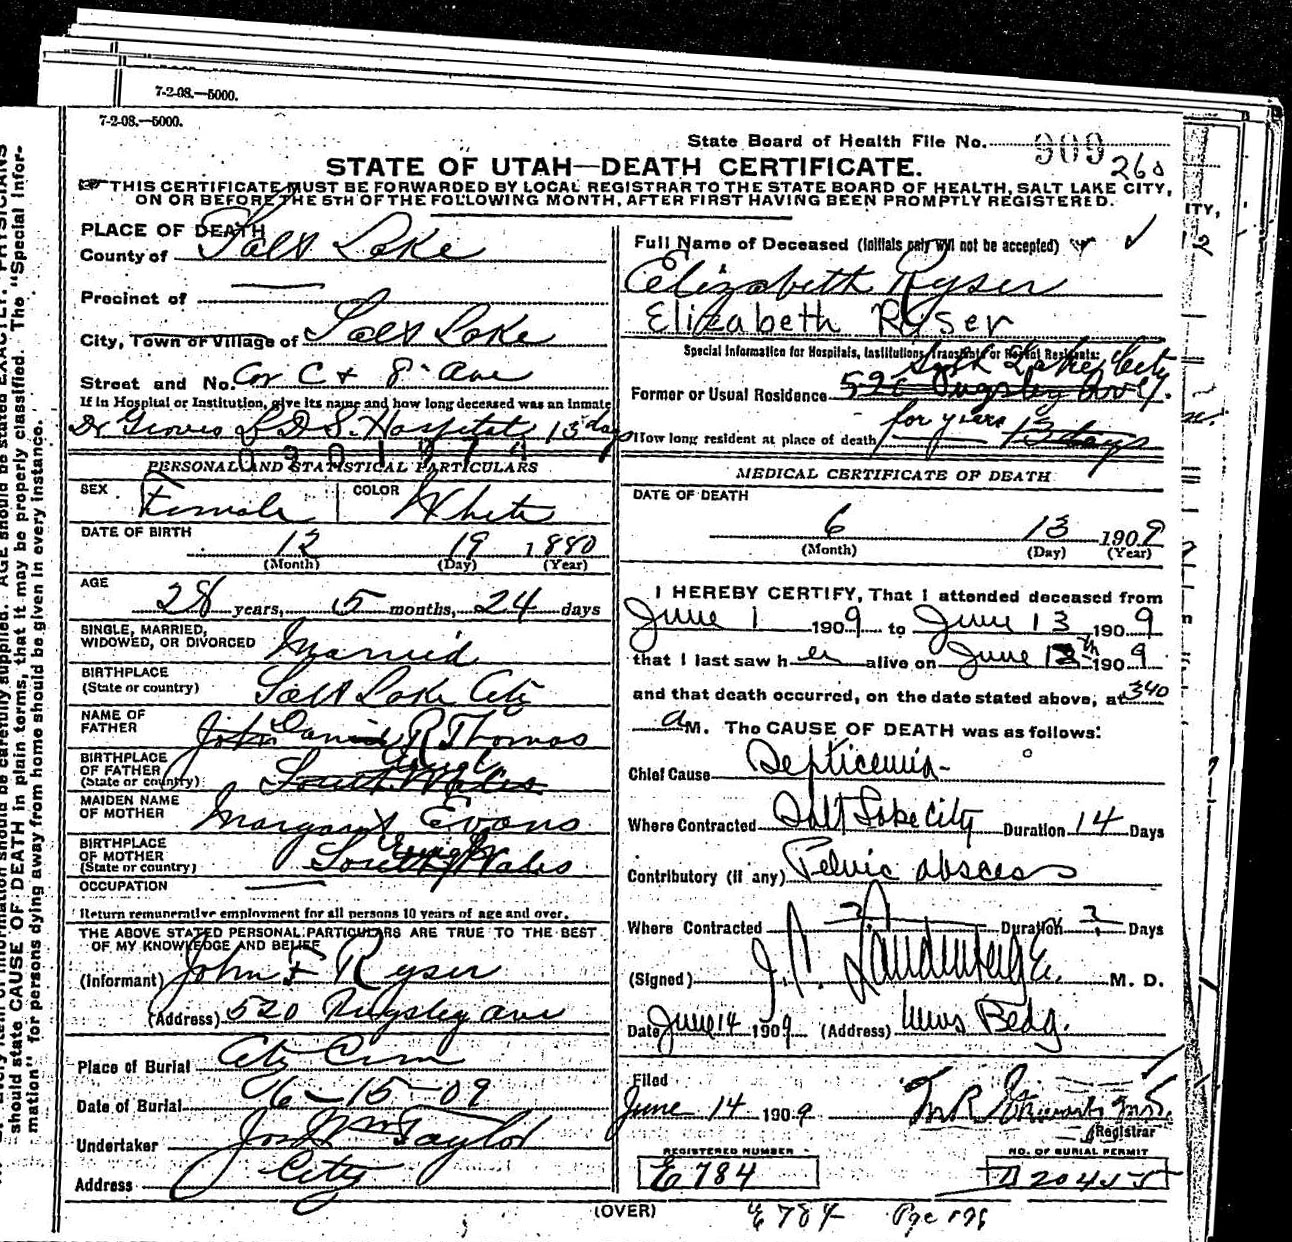 7-2-08.—5000.
7-2-08.—5000.
State Board of Health File No. 909
260
STATE OF UTAH—DEATH CERTIFICATE.
☞THIS CERTIFICATE MUST BE FORWARDED BY LOCAL REGISTRAR TO THE STATE BOARD OF HEALTH, SALT LAKE CITY,
ON OR BEFORE THE 5TH OF THE FOLLOWING MONTH, AFTER FIRST HAVING BEEN PROMPTLY REGISTERED.
PLACE OF DEATH
County of Salt Lake
Precinct of —
City, Town or Village of Salt Lake
Street and No. Cor C + 8 Ave
If in Hospital or Institution, give its name and how long deceased was an inmate
Dr Groves L.D.S. Hospital 13 days
PERSONAL AND STATISTICAL PARTICULARS
SEX Female COLOR White
DATE OF BIRTH
12 19 1880
(Month) (Day) (Year)
AGE
28 years, 5 months, 24 days
SINGLE, MARRIED,
WIDOWED, OR DIVORCED Married
BIRTHPLACE
(State or country) Salt Lake City
NAME OF
FATHER John Daniel R Thomas
BIRTHPLACE
OF FATHER
(State or country) South Wales
MAIDEN NAME
OF MOTHER Margaret Evans
BIRTHPLACE
OF MOTHER
(State or country) South Wales
OCCUPATION —
Return remunerative employment for all persons 10 years of age and over.
THE ABOVE STATED PERSONAL PARTICULARS ARE TRUE TO THE BEST
OF MY KNOWLEDGE AND BELIEF
(Informant) John F Ryser
(Address) 520 Pugsley Ave
Place of Burial City Cem
Date of Burial 6-15-09
Undertaker Jos Wm Taylor
Address City
Full Name of Deceased (Initials only will not be accepted)
Elizabeth Ryser
Elizabeth Ryser
Special Information for Hospitals, Institutions, Transients or Recent Residents:
Salt Lake City
Former or Usual Residence 520 Pugsley
for years
How long resident at place of death 13 days
MEDICAL CERTIFICATE OF DEATH
DATE OF DEATH
6 13 1909
(Month) (Day) (Year)
I HEREBY CERTIFY, That I attended deceased from
June 1 1909 to June 13 1909
that I last saw her alive on June 13th 1909
and that death occurred, on the date stated above, at 340
a M. The CAUSE OF DEATH was as follows:
Chief Cause Septicemia
Where Contracted Salt Lake City Duration 14 Days
Contributory (if any) Pelvic abscess
Where Contracted ? Duration ? Days
(Signed) M. D.
Date June 14 1909 (Address) News Bedg.
Filed
June 14 1909
Registrar
REGISTERED NUMBER
E 784
NO. OF BURIAL PERMIT
(OVER)
E 784
should state CAUSE OF DEATH in plain terms, that it may be properly classified. The "Special Infor-
mation" for persons dying away from home should be given in every instance.